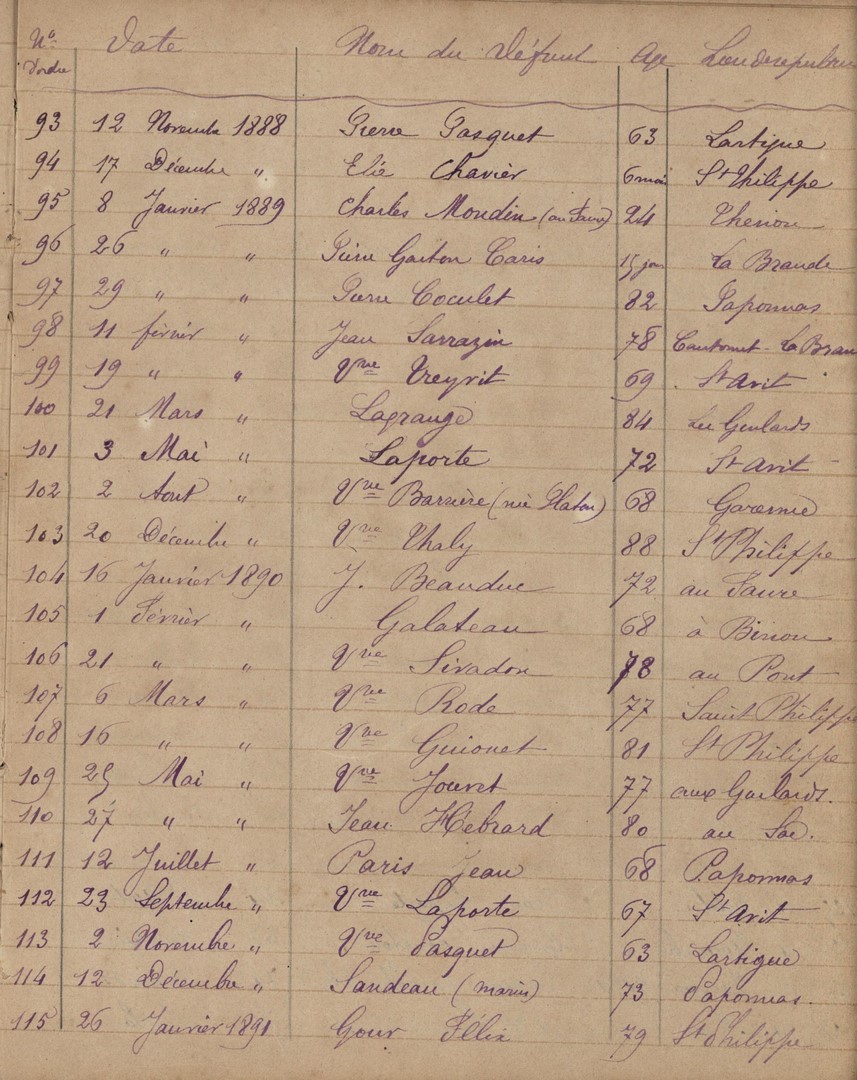 Nº d'ordre Date Nom du Défunt Age Lieu de sepulture
93 12 Novembre 1888 Pierre Pasquet 63 Lartigue
94 17 Décembre " Elie Chavier 6 mois St Philippe
95 8 Janvier 1889 Charles Moudin (au Faure) 24 Thenon
96 26 " " Pierre Gaston Caris 15 jours La Brande
97 29 " " Pierre Coculet 82 Paponnas
98 11 février " Jean Sarrazin 78 Cantonnet - La Bran
99 19 " " Vve Treyrit 69 St Avit
100 21 Mars " Lagrange 84 Les Goulards
101 3 Mai " Laporte 72 St Avit
102 2 Aout " Vve Barrière (née Platon) 68 Garennie
103 20 Décembre " Vve Thaly 88 St Philippe
104 16 Janvier 1890 J. Beauduc 72 au Faure
105 1 Février " Galateau 68 à Binou
106 21 " " Vve Sivadon 78 au Pont
107 6 Mars " Vve Rode 77 Saint Philippe
108 16 " " Vve Guionet 81 St Philippe
109 25 Mai " Vve Jouret 77 aux Goulards.
110 27 " " Jean Hebrard 80 au Sac.
111 12 Juillet " Paris Jean 68 Paponnas
112 23 Septembre " Vve Laporte 67 St Avit
113 2 Novembre " Vve Pasquet 63 Lartigue
114 12 Décembre " Sandeau (marius) 73 Paponnas.
115 26 Janvier 1891 Gour Félix 79 St Philippe